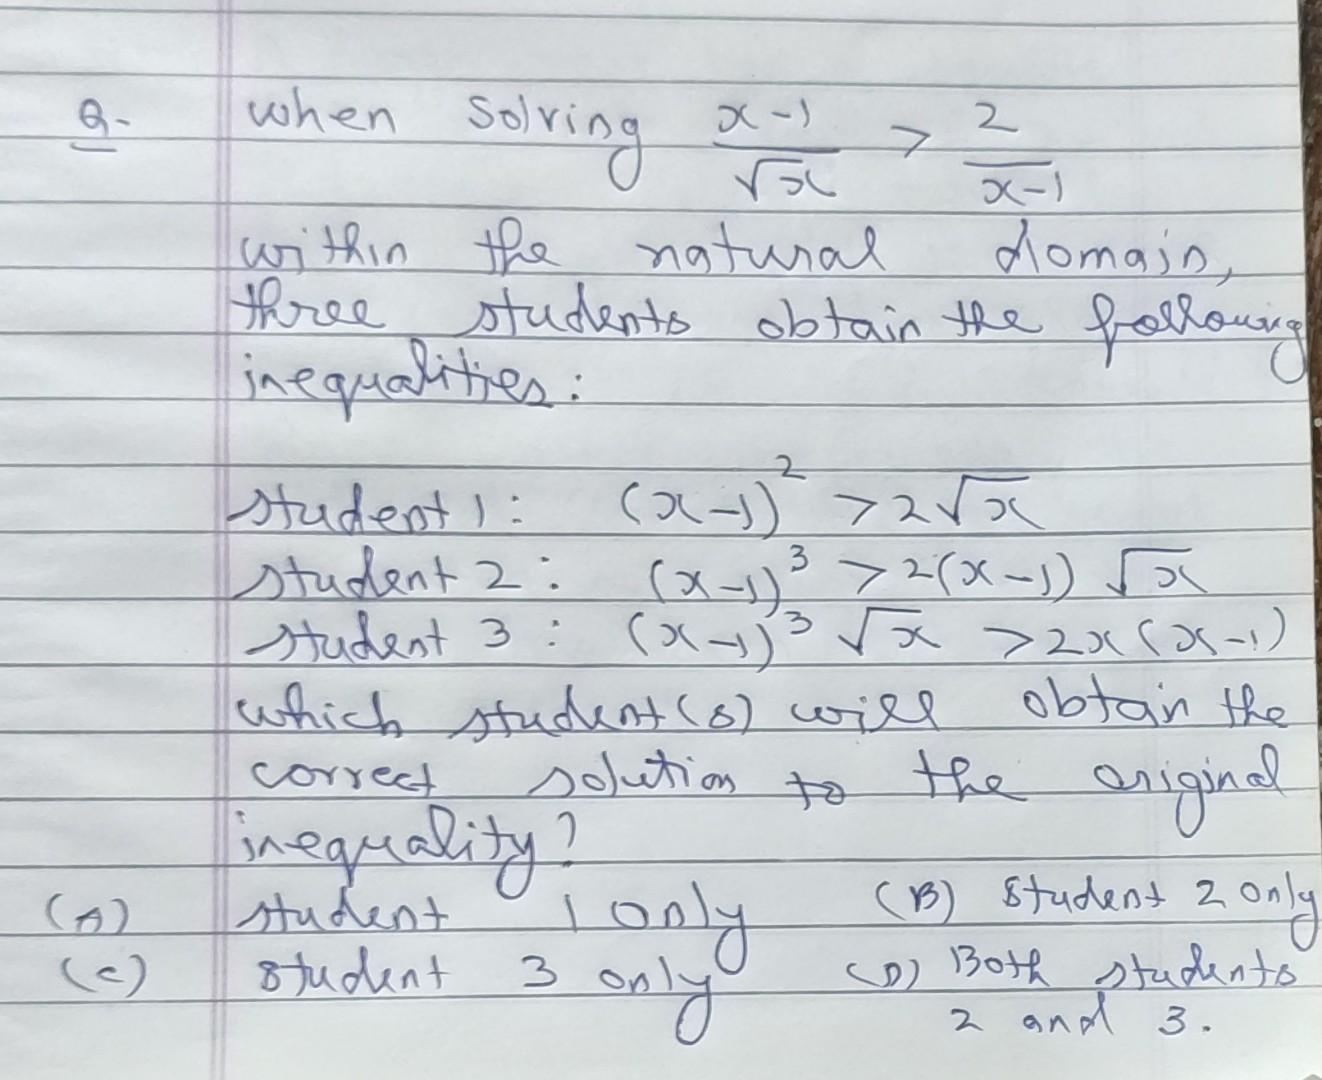 Q- when solving (x-1)/√x > 2/(x-1)
within the natural domain,
three students obtain the following
inequalities:
student 1: (x-1)² > 2√x
student 2: (x-1)³ > 2(x-1) √x
student 3: (x-1)³ √x > 2x(x-1)
which student(s) will obtain the
correct solution to the original
inequality?
(A) student 1 only (B) student 2 only
(C) student 3 only (D) Both students
2 and 3.